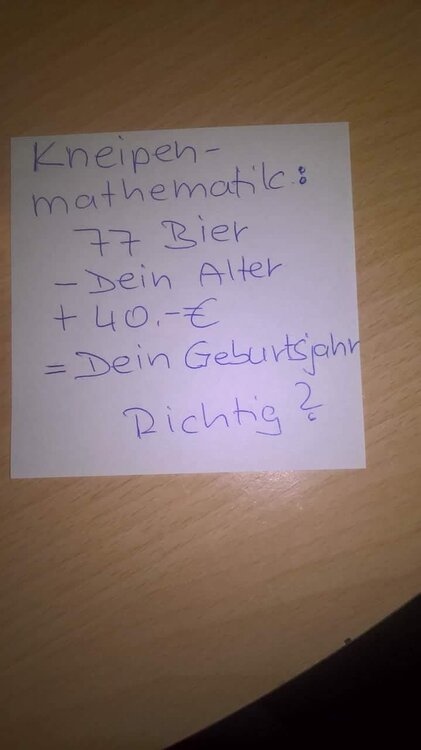 Kneipen-
mathematik:
77 Bier
- Dein Alter
+ 40.-€
= Dein Geburtsjahr
Richtig?